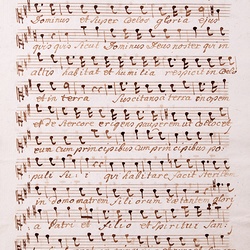 Dominus et super coelos gloria ejus
quis sicut Dominus Deus noster qui in
altis habitat et humilia respicit in coelo
et in terra Suscitans a terra inopem
et de stercore erigens pauperem ut collocet
eum cum principibus cum principibus po:
puli Sui qui habitare facit sterilem
in domo matrem filiorum laetantem glori
a Patri et Filio et Spiritui San: